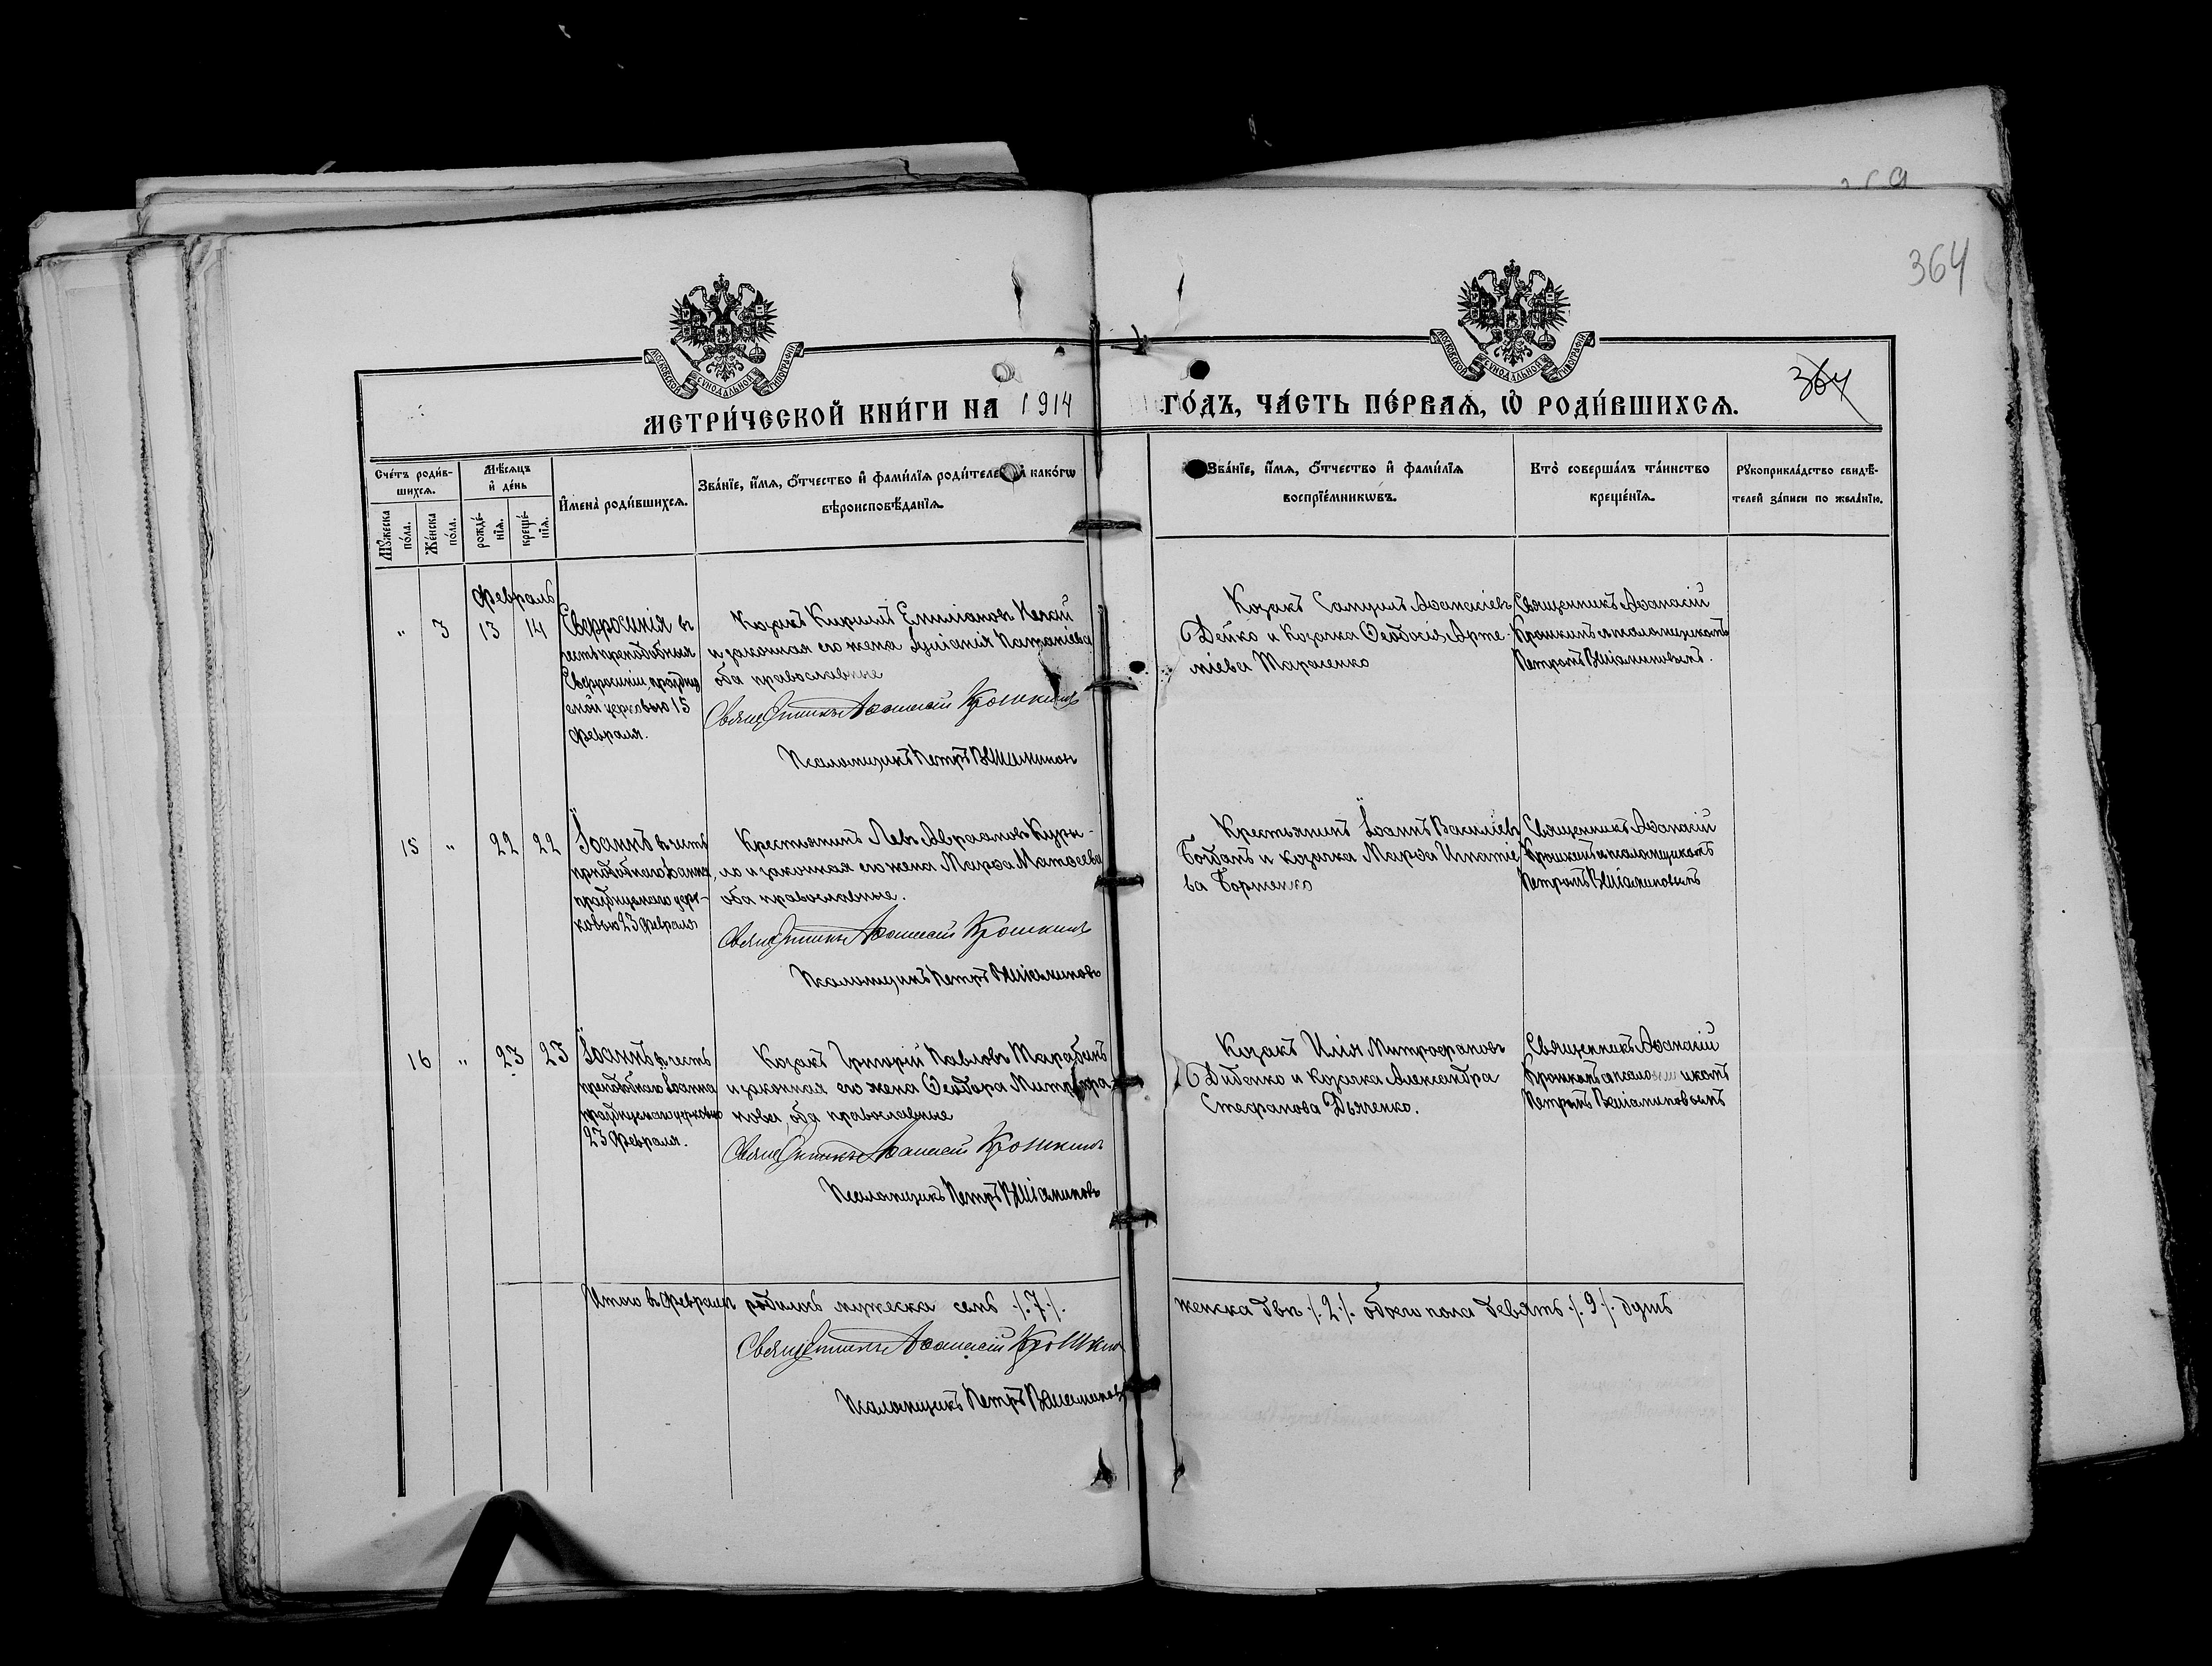 364
364
МОСКОВСКОЙ СѴНОДАЛЬНОЙ ТИПОГРАФІИ
МОСКОВСКОЙ СѴНОДАЛЬНОЙ ТИПОГРАФІИ
МЕТРИ́ЧЕСКОЙ КНИ́ГИ НА 1914 ГО́ДЪ, ЧА́СТЬ ПЕ́РВАѦ, Ѡ҆ РОДИ́ВШИХСѦ.
Сче́тъ роди́в-
шихсѧ.
Мꙋ́жеска
по́ла.
Же́нска
по́ла.
Мѣ́сѧцъ
и҆ де́нь
рожде́-
нїѧ.
креще́-
нїѧ.
И҆мена̀ роди́вшихсѧ.
Зва́нїе, и҆́мѧ, ѻ҆́тчество и҆ фами́лїѧ роди́теле и҆ како́гѡ
вѣроисповѣ́данїѧ.
Зва́нїе, и҆́мѧ, ѻ҆́тчество и҆ фами́лїѧ
воспрїе́мникѡвъ.
Кто̀ соверша́лъ та́инство
креще́нїѧ.
Рꙋкоприкла́дство свидѣ́-
телей за́писи по жела́нїю.
Февраль
" 3 13 14
Евфросинія въ
честь преподобныя
Евфросиніи, праздну
емой церковью 15
февраля.
Козакъ Кириллъ Емиліановъ
и законная его жена Іуліанія
оба православные
Священникъ Аѳанасій Крошкинъ
Псаломщикъ Петръ Веніаминовъ
Козакъ Самуилъ Аѳанасіевъ
Дейко и козачка Ѳеодосія Арте-
міева Тараненко
Священникъ Аѳанасій
Крошкинъ съ псаломщикомъ
Петромъ Веніаминовымъ.
15 " 22 22
Іоаннъ въ честь
преподобнаго Іоанна,
празднуемаго цер-
ковью 23 февраля
Крестьянинъ Левъ Авраамовъ Кури-
ло и законная его жена Марѳа Матѳеева
оба православные.
Священникъ Аѳанасій Крошкинъ
Псаломщикъ Петръ Веніаминовъ
Крестьянинъ Іоаннъ Василіевъ
Богданъ и козачка Марѳа Игнатіе
ва
Священникъ Аѳанасій
Крошкинъ съ псаломщикомъ
Петромъ Веніаминовымъ
16 " 23 23
Іоаннъ въ честь
преподобнаго Іоанна
празднуемаго церковью
23 февраля.
Козакъ Григорій Павловъ Тарабанъ
и законная его жена Ѳеодора Митрофа
нова, оба православные
Священникъ Аѳанасій Крошкинъ
Псаломщикъ Петръ Веніаминовъ
Козакъ Илія Митрофановъ
Диденко и козачка Александра
Стефанова Дьяченко.
Священникъ Аѳанасій
Крошкинъ съ псаломщикомъ
Петромъ Веніаминовымъ
Итого въ февралѣ родилось мужеска семь ./.7./. женска двѣ ./.2./. обоего пола девять ./.9./. душъ
Священникъ Аѳанасій Крошкинъ
Псаломщикъ Петръ Веніаминовъ